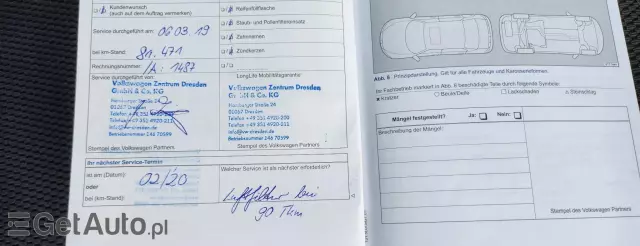 Kundenwunsch
(auch auf dem Auftrag vermerken)
Service durchgeführt am: 06 03 19
bei km-Stand: 81.471
Rechnungsnummer:
1487
Service durchgeführt von:
Volkswagen Zentrum Dresden
GmbH & Co. KG
Hamburger Straße 24
01157 Dresden
Stempel des Volkswagen Partners
Reifenfüllflasche
Staub- und Pollenfiltereinsatz
Zahnriemen
Zündkerzen
LongLife Mobilitätsgarantie
Volkswagen Zentrum Dresden
GmbH & Co. KG
Hamburger Straße 24
01157 Dresden
Telefon +49 351 4920-200
Telefax +49 351 4920-211
info@vw-dresden.de
Betriebsnummer 246 70599
Stempel des Volkswagen Partners
Ihr nächster Service-Termin
ist am (Datum): 02/20
oder
bei (km-Stand):
Welcher Service ist als nächster erforderlich?
Luftfilter bei
90 Tkm
Abb. 6 Prinzipdarstellung. Gilt für alle Fahrzeug- und Karosserieformen.
Im Fahrzeugbild markiert in Abb. 6 beschädigte Teile durch folgende Symbole:
x Kratzer
○ Beule/Delle
□ Lackschaden
◇ Steinschlag
Mängel festgestellt? Ja: Nein:
Beschreibung der Mängel:
Stempel des Volkswagen Partners
GetAuto.pl